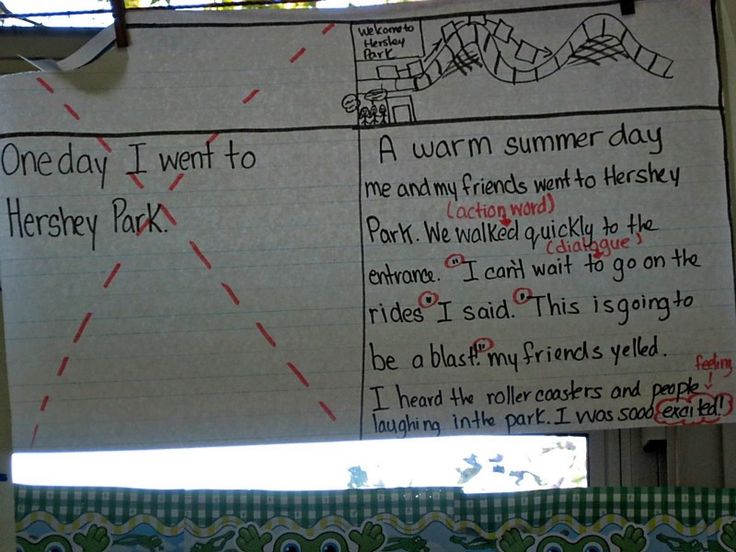 Welcome to
Hershey
Park
One day I went to
Hershey Park.
A warm summer day
me and my friends went to Hershey
(action word)
Park. We walked quickly to the
(dialogue)
entrance. "I can't wait to go on the
rides" I said. "This is going to
be a blast!" my friends yelled.
feeling
I heard the roller coasters and people
laughing in the park. I was sooo excited!